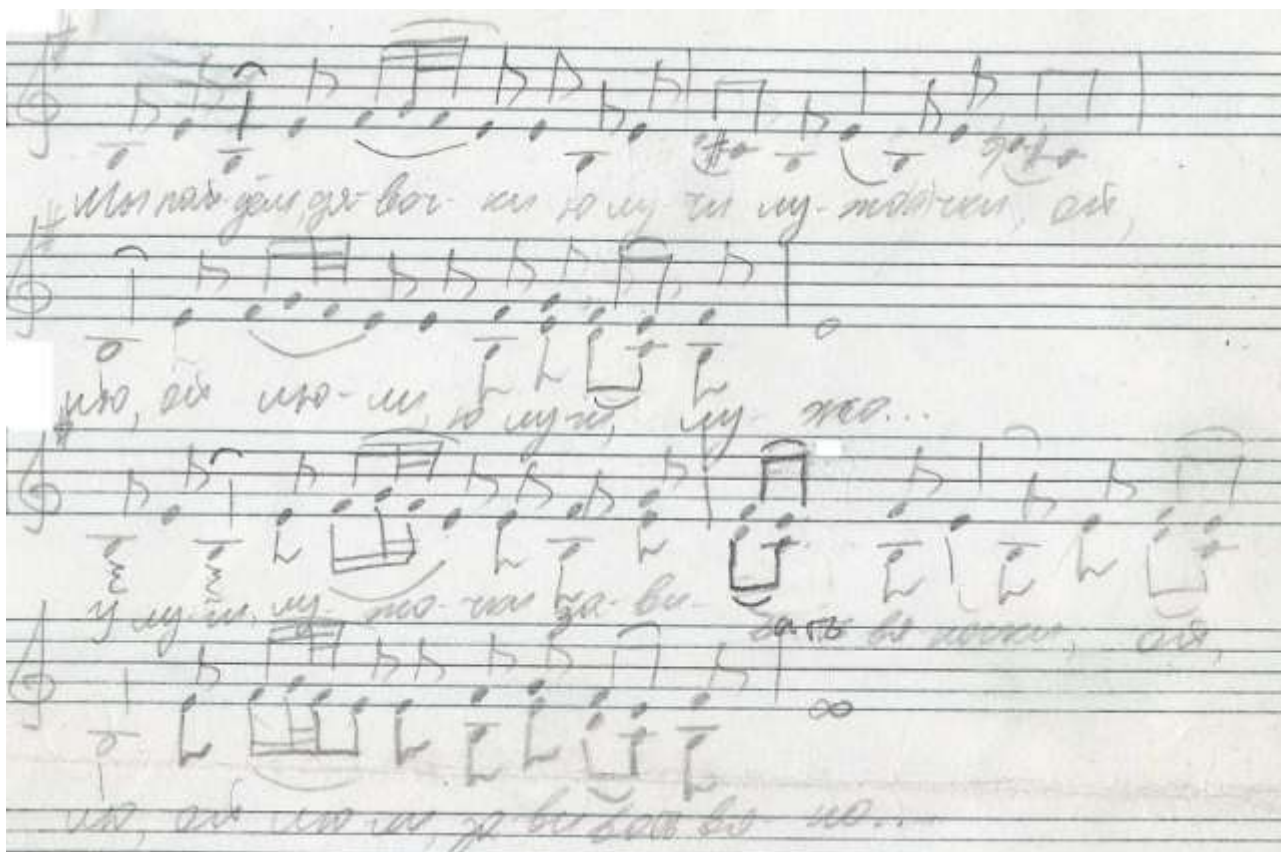 Мы пай-дём, дя-воч-ки ю лу-чи лу-жоачки, ой,
лю, ой лю-ли, ю лу-чи, лу-жо...
У лу-чи, лу-жо-чки за-ви-вать вя ночки, ой,
лю, ой лю ли, за-ви вать вя-но...